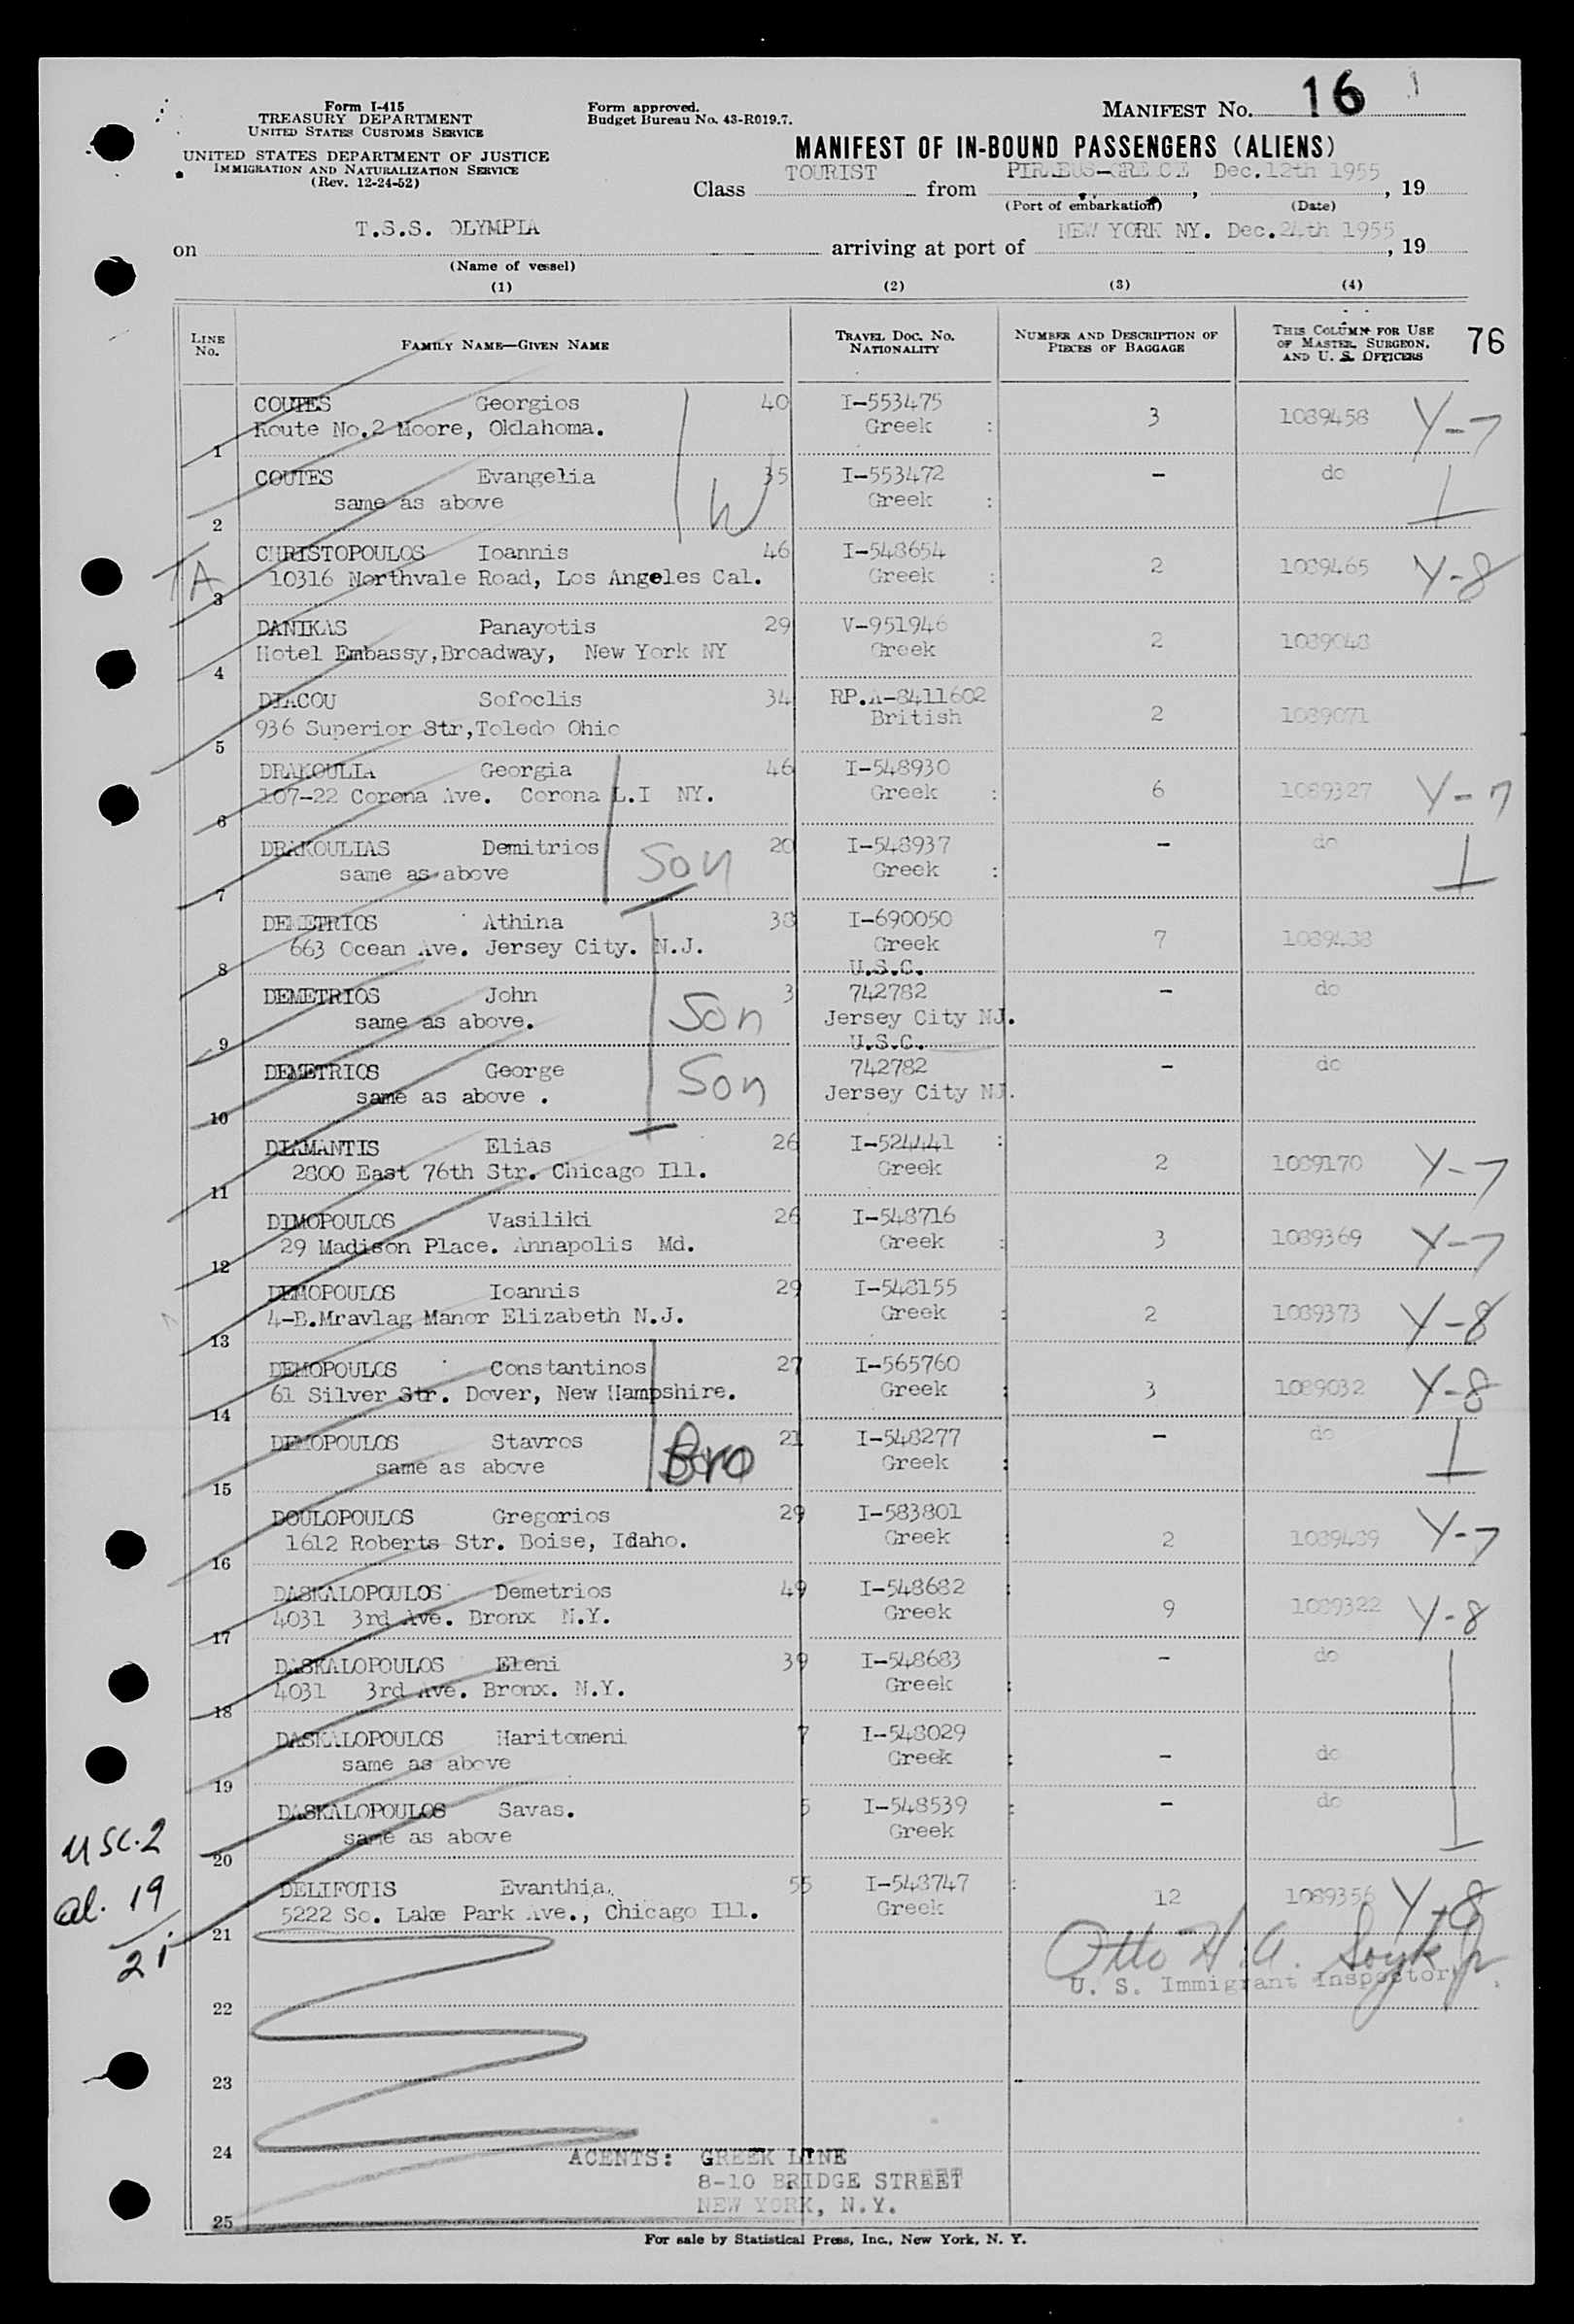 Form I-415
TREASURY DEPARTMENT
UNITED STATES CUSTOMS SERVICE
UNITED STATES DEPARTMENT OF JUSTICE
IMMIGRATION AND NATURALIZATION SERVICE
(Rev. 12-24-52)
Form approved.
Budget Bureau No. 43-R019.7.
MANIFEST No. 16
MANIFEST OF IN-BOUND PASSENGERS (ALIENS)
Class TOURIST from PIRAEUS-GREECE, Dec.12th 1955, 19
(Port of embarkation) (Date)
on T.S.S. OLYMPIA arriving at port of NEW YORK NY. Dec.24th 1955, 19
(Name of vessel)
(1) (2) (3) (4)
LINE No. FAMILY NAME—GIVEN NAME TRAVEL DOC. No. NATIONALITY NUMBER AND DESCRIPTION OF PIECES OF BAGGAGE THIS COLUMN FOR USE OF MASTER, SURGEON, AND U. S. OFFICERS 76
COUTES Georgios 40 I-553475 3 1089458 Y-7
1 Route No.2 Moore, Oklahoma. Greek :
COUTES Evangelia 35 I-553472 - do
2 same as above W Greek :
CHRISTOPOULOS Ioannis 46 I-548654 2 1089465 Y-8
A 3 10316 Northvale Road, Los Angeles Cal. Greek :
DANIKAS Panayotis 29 V-951946 2 1089048
4 Hotel Embassy,Broadway, New York NY Greek
DIACOU Sofoclis 34 RP.A-8411602 2 1089071
5 936 Superior Str,Toledo Ohio British
DRAKOULIA Georgia 46 I-548930 6 1089327 Y-7
6 107-22 Corona Ave. Corona L.I NY. Greek :
DRAKOULIAS Demitrios 20 I-548937 - do
7 same as above Son Greek :
DEMETRIOS Athina 38 I-690050 7 1089488
8 663 Ocean Ave. Jersey City. N.J. Greek
U.S.C.
DEMETRIOS John 3 742782 - do
9 same as above. Son Jersey City NJ.
U.S.C.
DEMETRIOS George 742782 - do
10 same as above . Son Jersey City NJ.
DIAMANTIS Elias 26 I-524441 : 2 1089170 Y-7
11 2800 East 76th Str. Chicago Ill. Greek
DIMOPOULOS Vasiliki 26 I-548716 3 1089369 Y-7
12 29 Madison Place. Annapolis Md. Greek :
DEMOPOULOS Ioannis 29 I-548155 2 1089373 Y-8
13 4-B.Mravlag Manor Elizabeth N.J. Greek :
DEMOPOULOS Constantinos 27 I-565760 3 1089032 Y-8
14 61 Silver Str. Dover, New Hampshire. Greek :
DEMOPOULOS Stavros 21 I-548277 - do
15 same as above Bro Greek :
DOULOPOULOS Gregorios 29 I-583801 2 1089489 Y-7
16 1612 Roberts Str. Boise, Idaho. Greek :
DASKALOPOULOS Demetrios 49 I-548682 : 9 1089322 Y-8
17 4031 3rd Ave. Bronx N.Y. Greek
DASKALOPOULOS Eleni 39 I-548683 - do
18 4031 3rd Ave. Bronx. N.Y. Greek :
DASKALOPOULOS Haritomeni 7 I-548029 - do
19 same as above Greek :
DASKALOPOULOS Savas. 5 I-548539 : - do
20 same as above Greek
DELIFOTIS Evanthia. 55 I-548747 : 12 1089356 Y-8
21 5222 So. Lake Park Ave., Chicago Ill. Greek
USC. 2
al. 19
21
Otto H.A. Jr
U. S. Immigrant Inspector.
22
23
24
AGENTS: GREEK LINE
8-10 BRIDGE STREET
NEW YORK, N.Y.
25
For sale by Statistical Press, Inc., New York, N. Y.